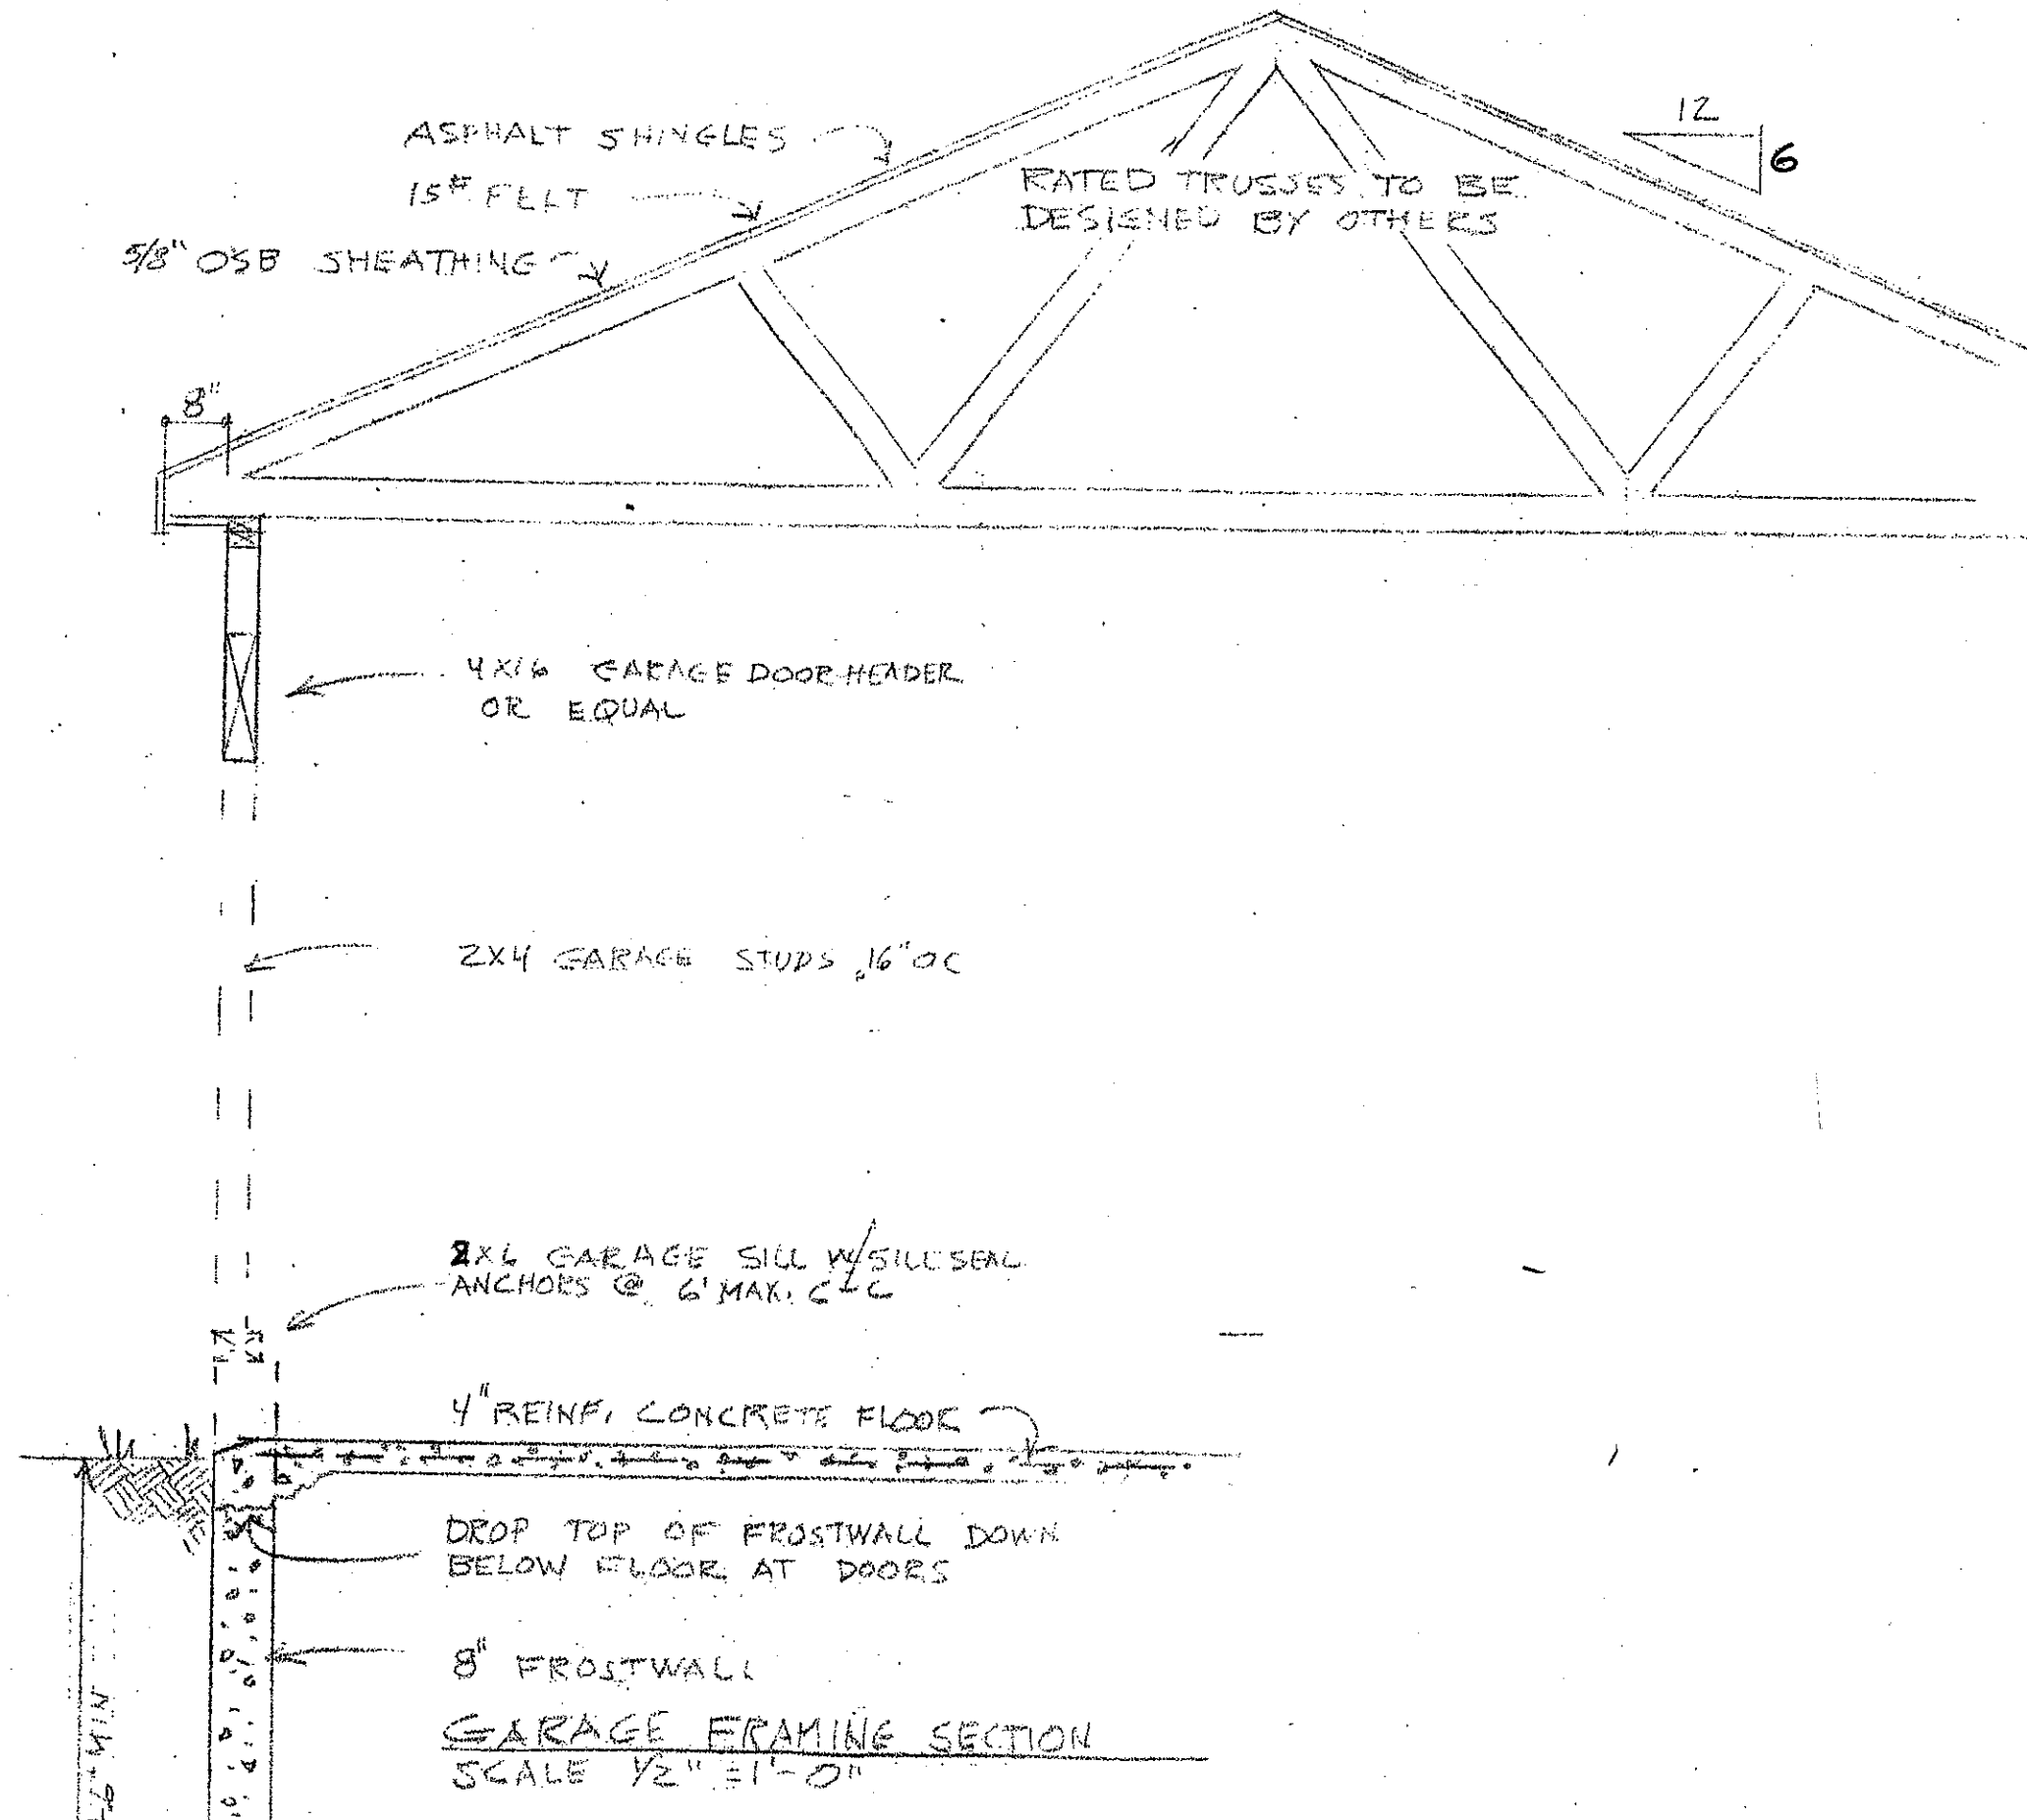 ASPHALT SHINGLES
15# FELT
5/8" OSB SHEATHING
12
6
RATED TRUSSES TO BE
DESIGNED BY OTHERS
8"
4X16 GARAGE DOOR HEADER
OR EQUAL
2X4 GARAGE STUDS, 16" OC
2X6 GARAGE SILL W/SILL SEAL
ANCHORS @ 6' MAX. C-C
4" REINF. CONCRETE FLOOR
DROP TOP OF FROSTWALL DOWN
BELOW FLOOR AT DOORS
8" FROSTWALL
MIN
GARAGE FRAMING SECTION
SCALE 1/2" = 1'-0"